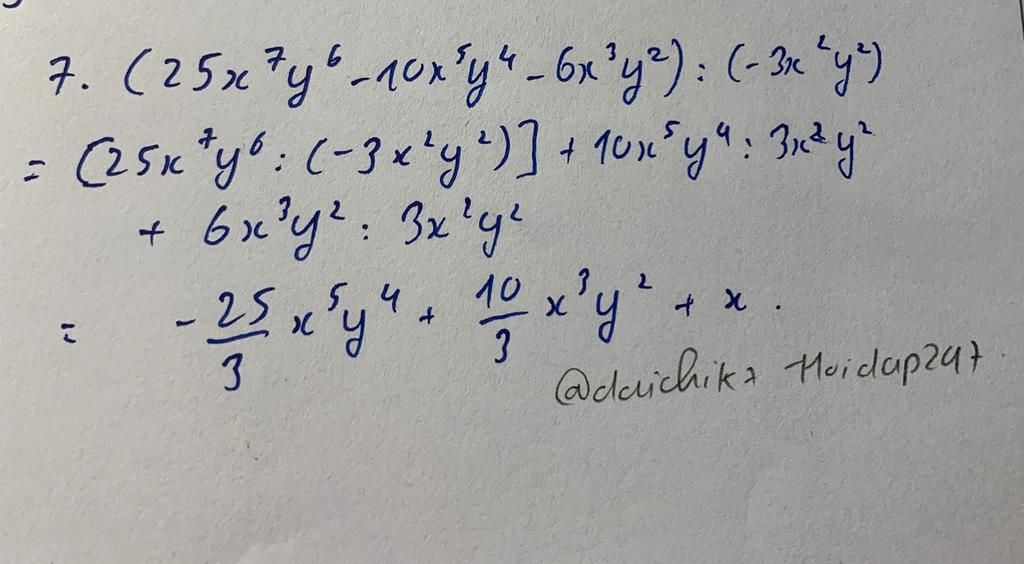 7. (25x⁷y⁶ - 10x⁵y⁴ - 6x³y²) : (-3x²y²)
= [25x⁷y⁶ : (-3x²y²)] + 10x⁵y⁴ : 3x²y²
+ 6x³y² : 3x²y²
= - 25/3 x⁵y⁴ + 10/3 x³y² + x .
@daichik7 Hoidap247